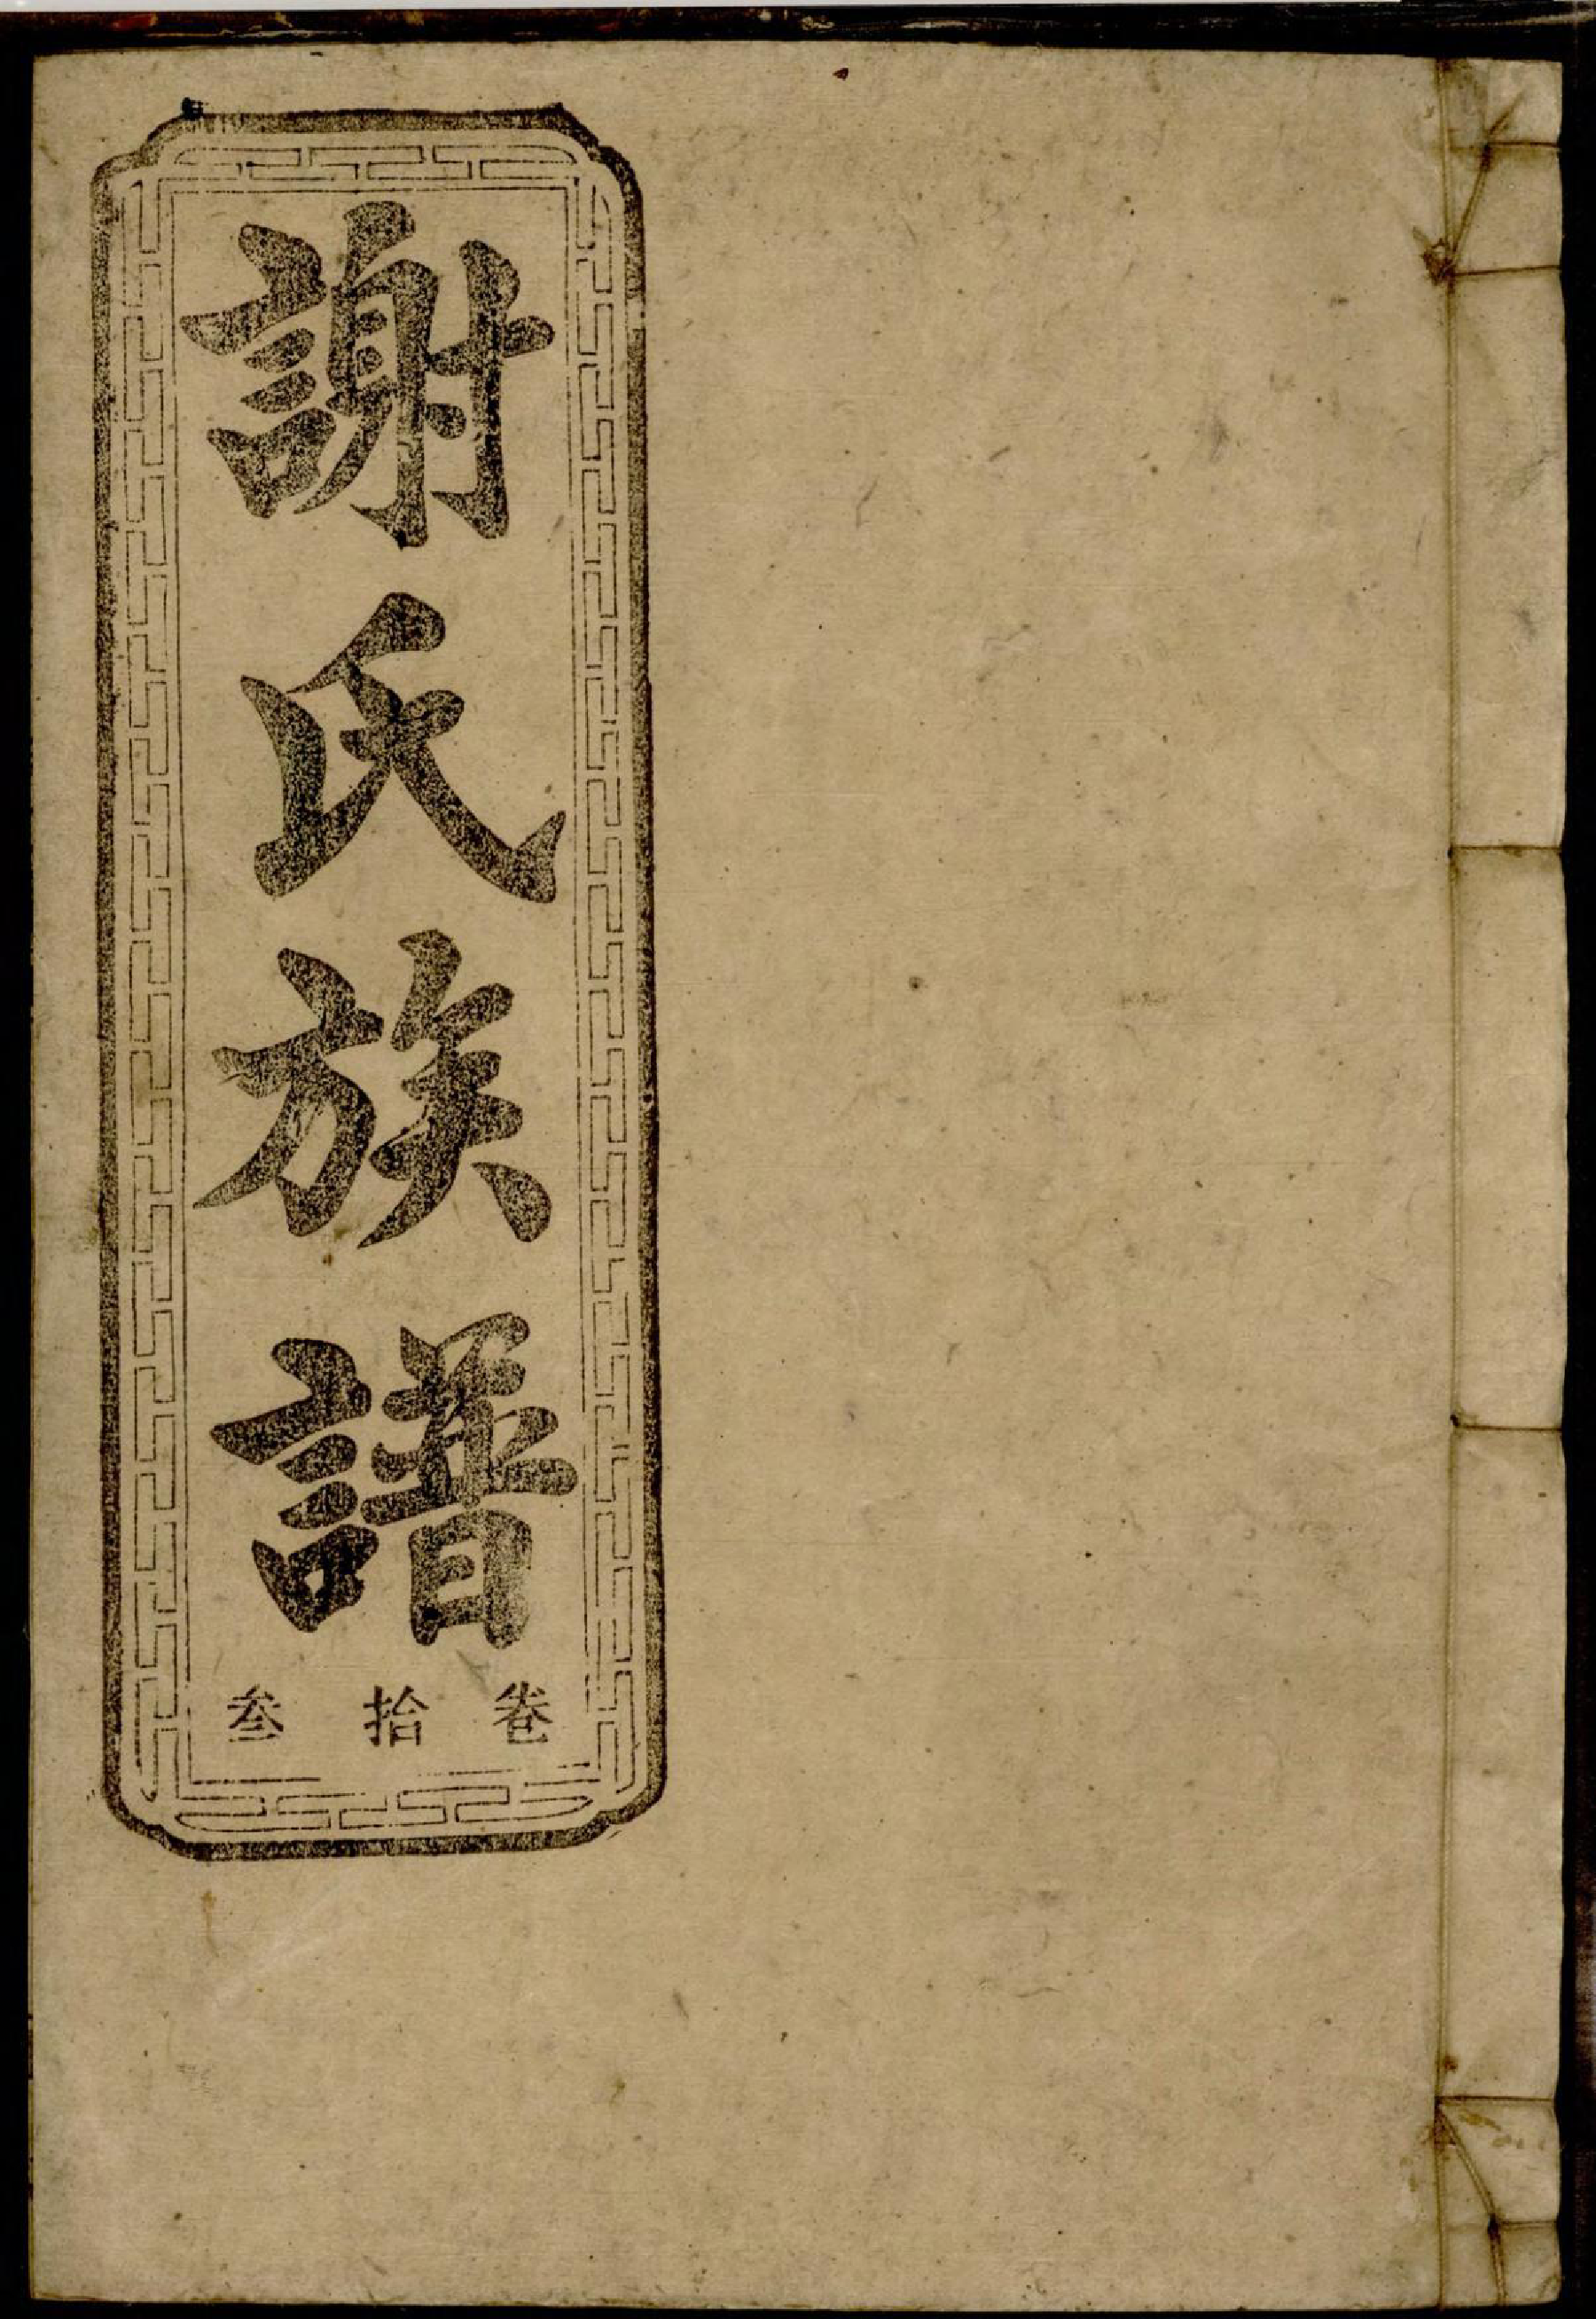 謝氏族譜
卷拾叁